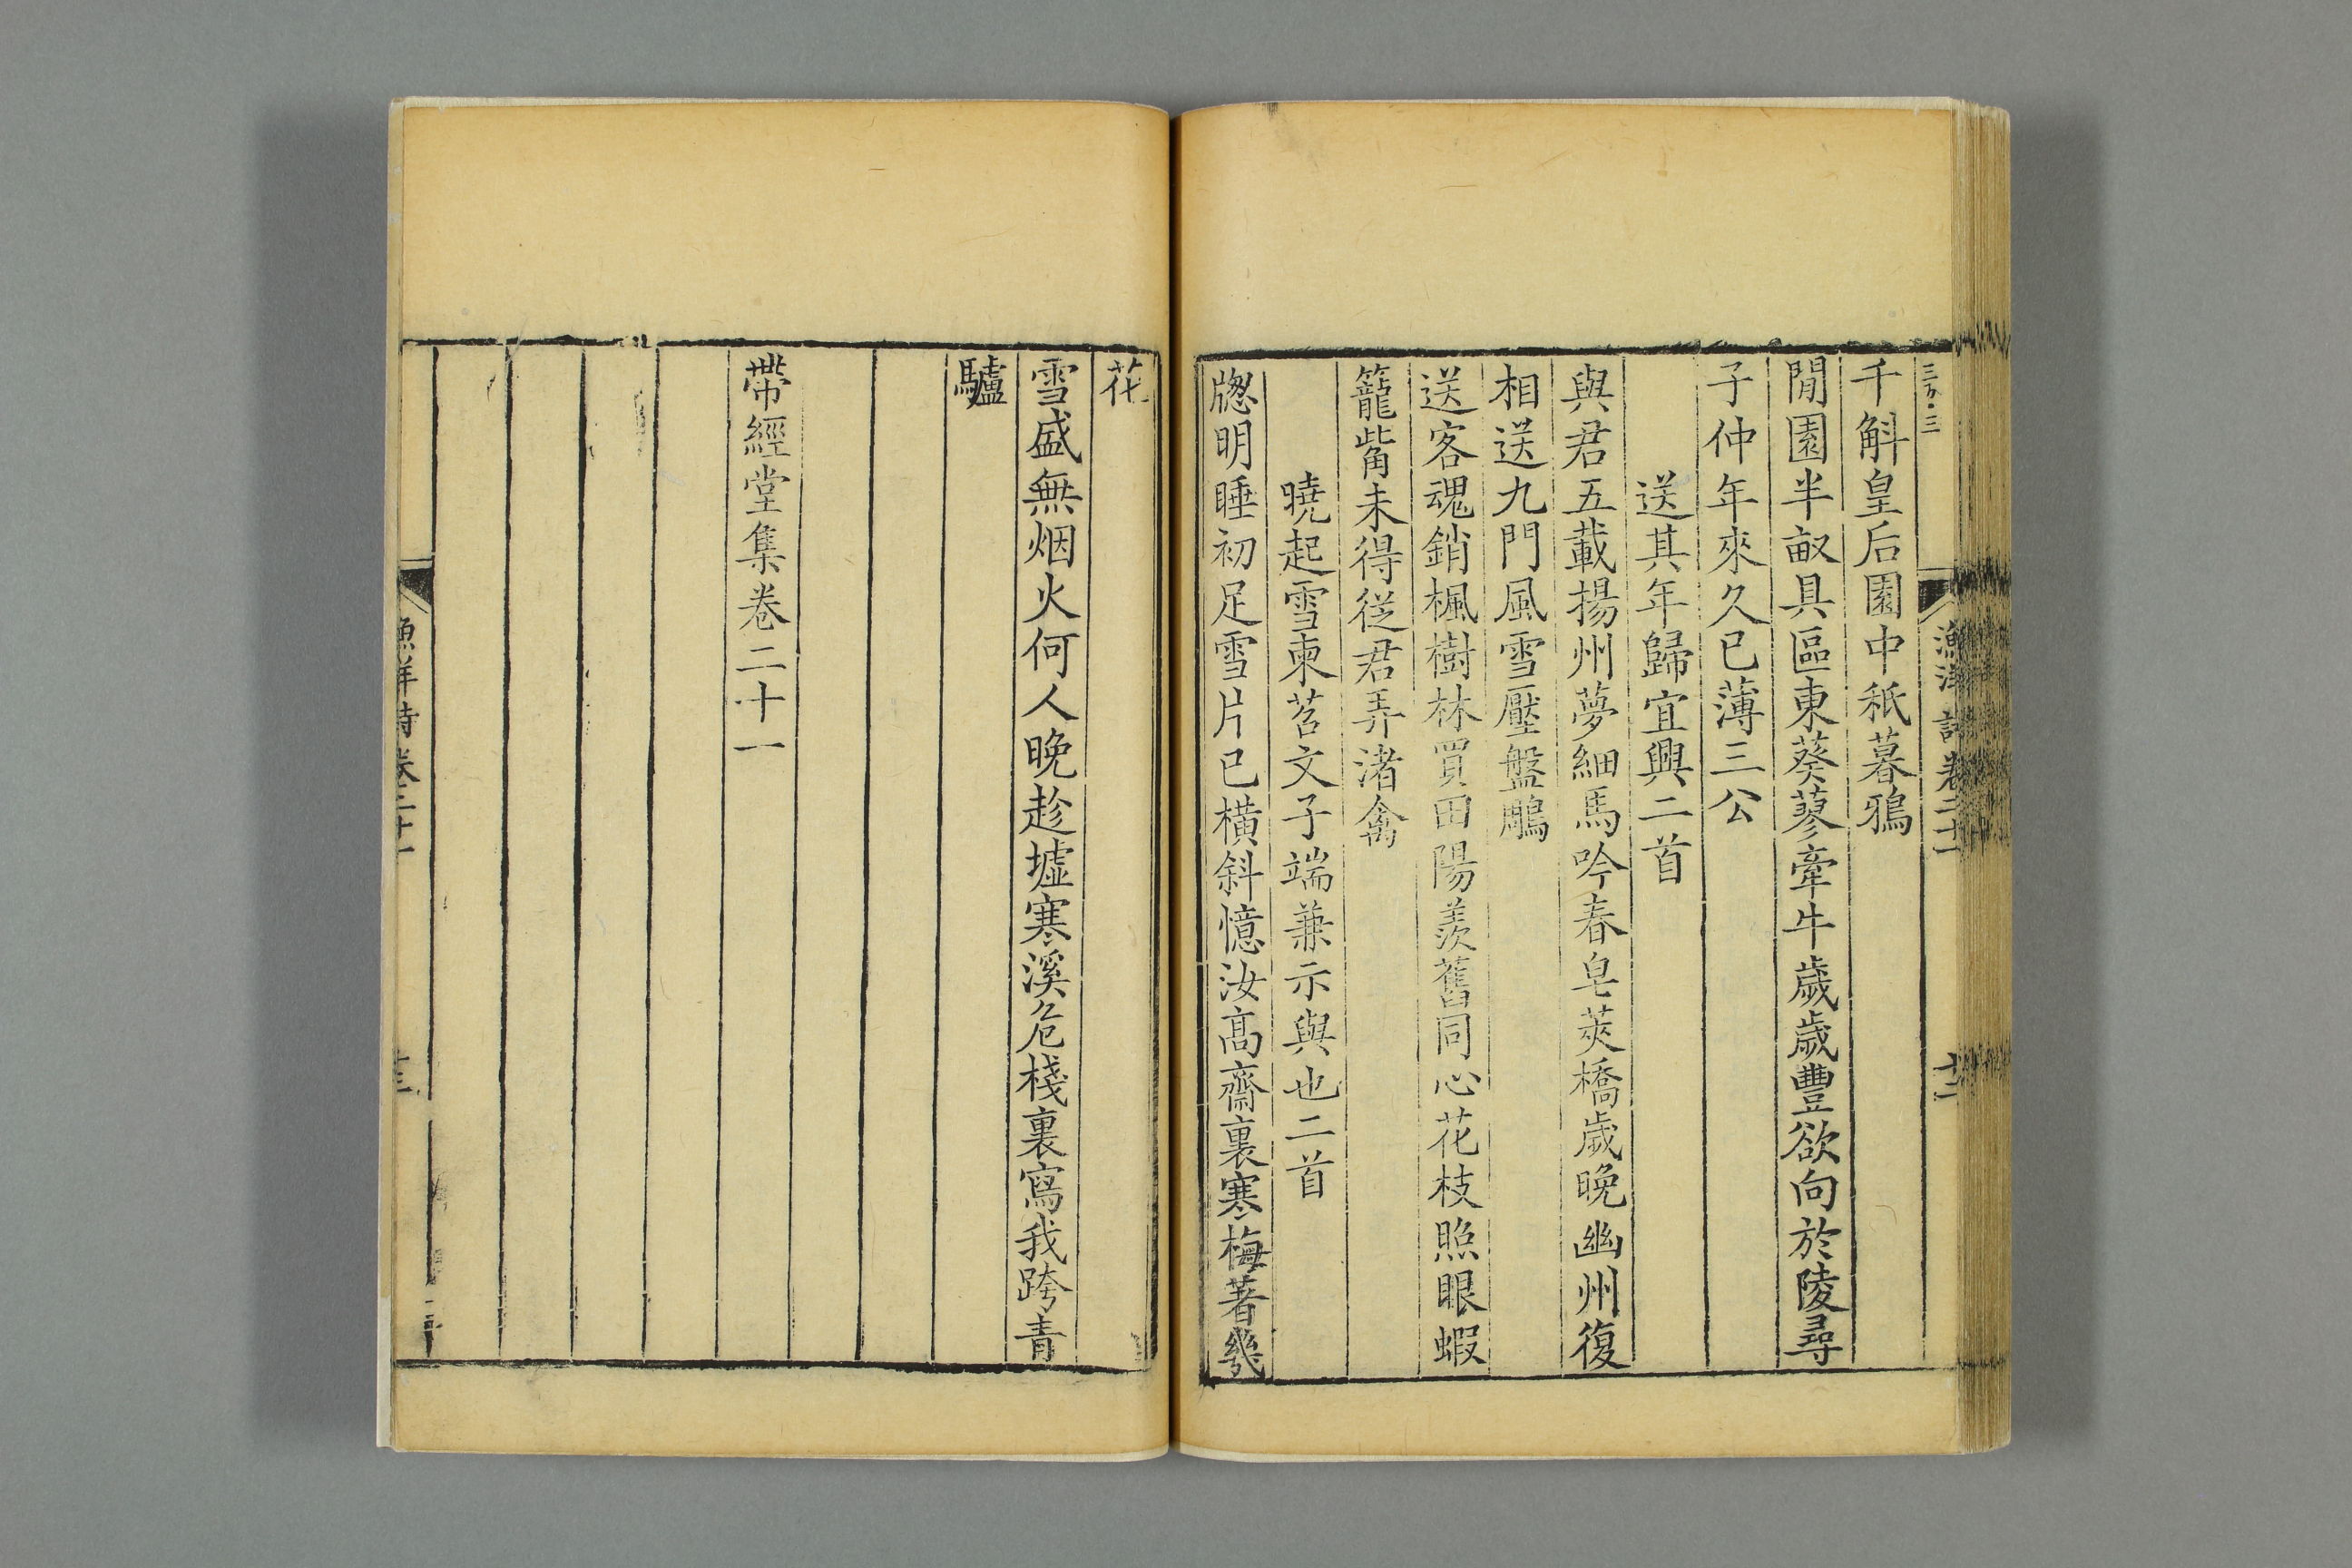 千斛皇后園中秖暮鴉
閒園半畝具區東葵蓼牽牛歲歲豐欲向於陵尋
子仲年來久已薄三公
送其年歸宜興二首
與君五載揚州夢細馬吟春皂莢橋歲晚幽州復
相送九門風雪壓盤鵰
送客魂銷楓樹林買田陽羨舊同心花枝照眼蝦
籠觜未得從君弄渚禽
曉起雪柬苕文子端兼示與也二首
牕明睡初足雪片已橫斜憶汝高齋裏寒梅著幾
花
雪盛無烟火何人晚趁墟寒溪危棧裏寫我跨青
驢
帶經堂集卷二十一
漁洋詩卷二十一
十三